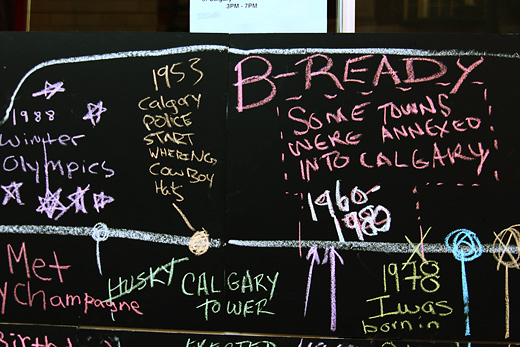 3PM - 7PM
1988
Winter
Olympics
1953
Calgary
POLICE
START
WHERING
COWBOY
Hats
B-READY
SOME TOWNS
WERE ANNEXED
INTO CALGARY
1960-
1980
Met
Champagne
HUSKY
CALGARY
TOWER
1978
I was
born in